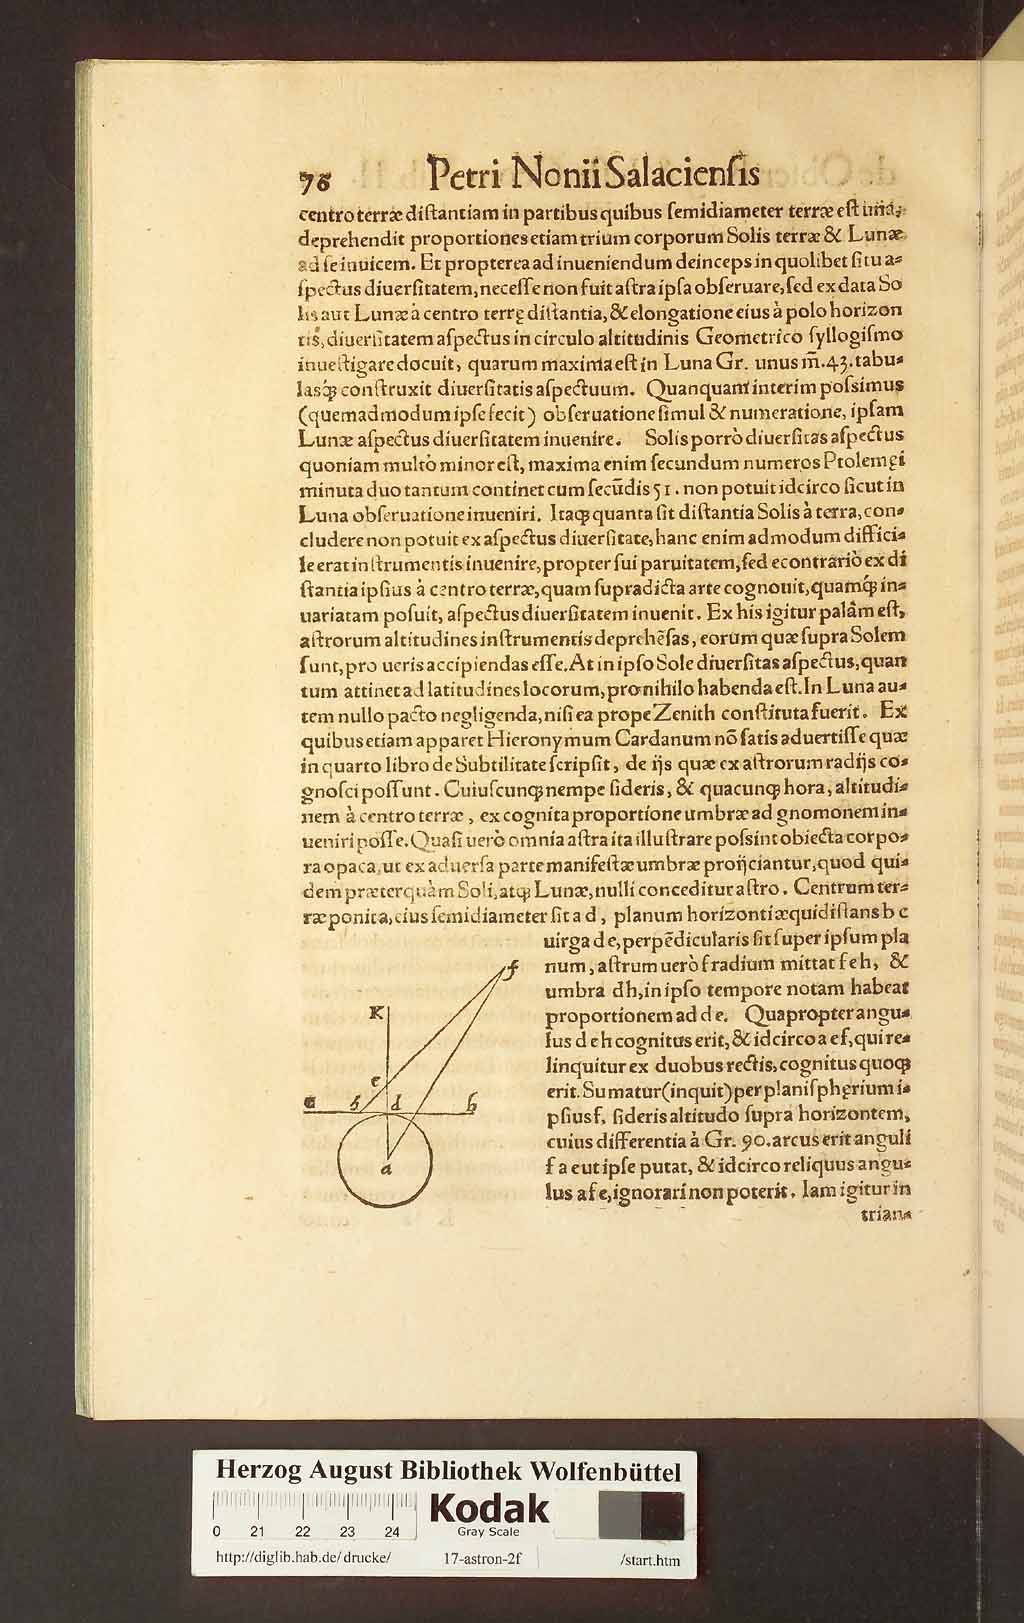 76 Petri Nonii Salaciensis
centro terræ distantiam in partibus quibus semidiameter terræ est una,
deprehendit proportiones etiam trium corporum Solis terræ & Lunæ
ad se inuicem. Et propterea ad inueniendum deinceps in quolibet situ a-
spectus diuersitatem, necesse non fuit astra ipsa obseruare, sed ex data So
lis aut Lunæ à centro terrę distantia, & elongatione eius à polo horizon
tis, diuersitatem aspectus in circulo altitudinis Geometrico syllogismo
inuestigare docuit, quarum maxima est in Luna Gr. unus m̄. 43. tabu-
lasq́; construxit diuersitatis aspectuum. Quanquam interim possimus
(quemadmodum ipse fecit) obseruatione simul & numeratione, ipsam
Lunæ aspectus diuersitatem inuenire. Solis porrò diuersitas aspectus
quoniam multò minor est, maxima enim secundum numeros Ptolemęi
minuta duo tantum continet cum secūdis 51. non potuit idcirco sicut in
Luna obseruatione inueniri. Itaq; quanta sit distantia Solis à terra, con-
cludere non potuit ex aspectus diuersitate, hanc enim admodum diffici-
le erat instrumentis inuenire, propter sui paruitatem, sed econtrariò ex di
stantia ipsius à centro terræ, quam supradicta arte cognouit, quamq́; in-
uariatam posuit, aspectus diuersitatem inuenit. Ex his igitur palâm est,
astrorum altitudines instrumentis deprehēsas, eorum quæ supra Solem
sunt, pro ueris accipiendas esse. At in ipso Sole diuersitas aspectus, quan
tum attinet ad latitudines locorum, pro nihilo habenda est. In Luna au-
tem nullo pacto negligenda, nisi ea prope Zenith constituta fuerit. Ex
quibus etiam apparet Hieronymum Cardanum nō satis aduertisse quæ
in quarto libro de Subtilitate scripsit, de ijs quæ ex astrorum radijs co-
gnosci possunt. Cuiuscunq; nempe sideris, & quacunq; hora, altitudi-
nem à centro terræ, ex cognita proportione umbræ ad gnomonem in-
ueniri posse. Quasi uerò omnia astra ita illustrare possint obiecta corpo-
ra opaca, ut ex aduersa parte manifestæ umbræ proijciantur, quod qui-
dem præterquàm Soli, atq; Lunæ, nulli conceditur astro. Centrum ter-
ræ ponit a, eius semidiameter sit a d, planum horizonti æquidistans b c
uirga d e, perpēdicularis sit super ipsum pla
num, astrum uerò f radium mittat f e h, &
umbra d h, in ipso tempore notam habeat
proportionem ad d e. Quapropter angu-
lus d e h cognitus erit, & idcirco a e f, qui re-
linquitur ex duobus rectis, cognitus quoq;
erit. Sumatur (inquit) per planisphęrium i-
psius f, sideris altitudo supra horizontem,
cuius differentia à Gr. 90. arcus erit anguli
f a e ut ipse putat, & idcirco reliquus angu-
lus a f e, ignorari non poterit. Iam igitur in
trian-
f
K
e
c h d b
a
Herzog August Bibliothek Wolfenbüttel
Kodak
Gray Scale
0 21 22 23 24
http://diglib.hab.de/drucke/ 17-astron-2f /start.htm